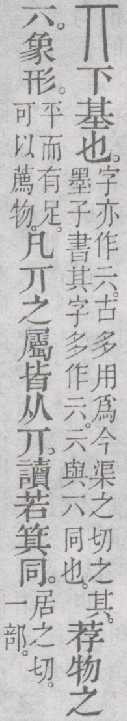 丌下基也。字亦作亓。古多用爲今渠之切之其。墨子書其字多作亓。亓與丌同也。荐物之
丌。象形。平而有足。可以薦物。凡丌之屬皆从丌。讀若箕同。居之切。一部。